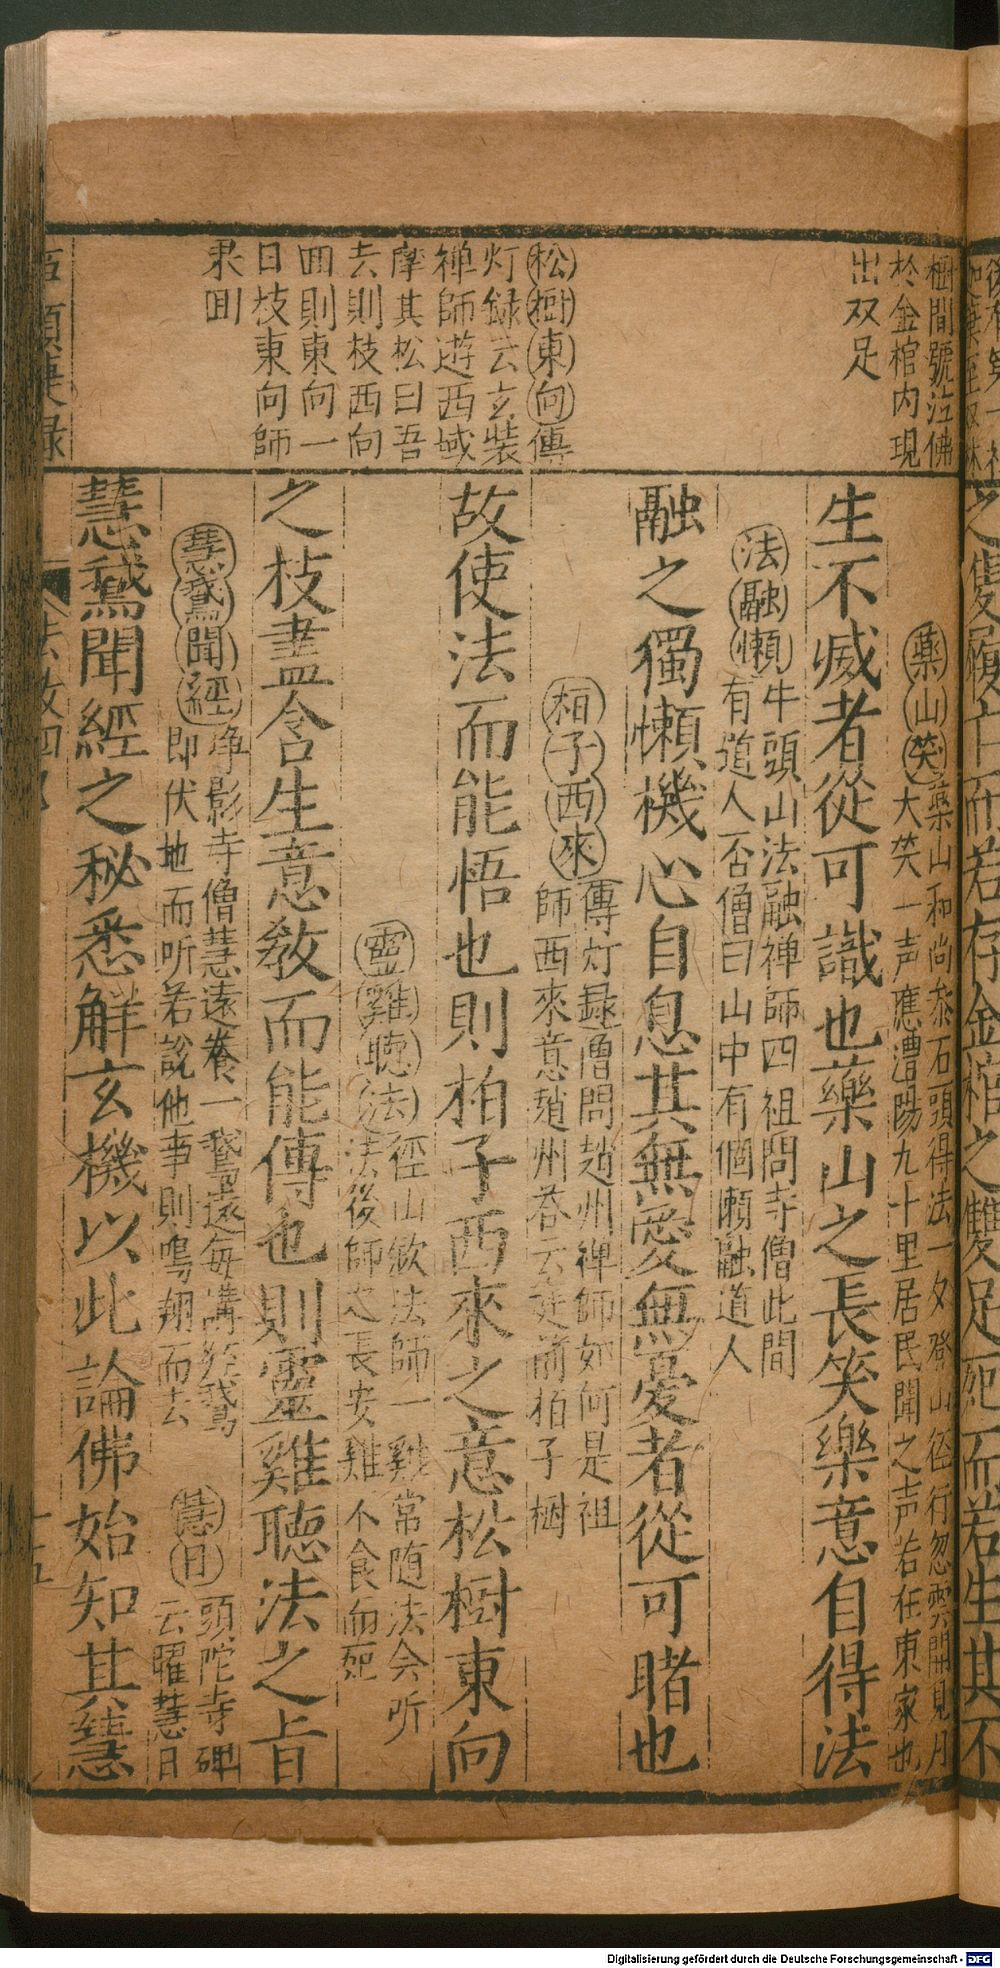 樹間號泣佛
於金棺内現
出双足
松樹東向傳
灯録云玄裝
禅師遊西域
摩其松曰吾
去則枝西向
回則東向一
日枝東向師
果回
藥山笑藥山和尚叅石頭得法一夕登山径行忽雲開見月
大笑一声應澧陽九十里居民聞之声若在東家也
生不烕者從可識也藥山之長笑樂意自得法
法融懶牛頭山法融禅師四祖問寺僧此間
有道人否僧曰山中有個懶融道人
融之獨懶機心自息其無愛無憂者從可睹也
栢子西來傳灯録僧問趙州禅師如何是祖
師西來意趙州答云庭前柏子樹
故使法而能悟也則柏子西來之意松樹東向
靈雞聴法徑山欽法師一雞常随法会听
法後師之長安雞不食而死
之枝盡含生意教而能傳也則靈雞聴法之旨
慧鵞聞經净影寺僧慧遠養一鵞遠每講經鵞
即伏地而听若說他事則鳴翔而去
慧日頭陀寺碑
云曜慧日
慧鵞聞經之秘悉解玄機以此論佛始知其慧
Digitalisierung gefördert durch die Deutsche Forschungsgemeinschaft - DFG